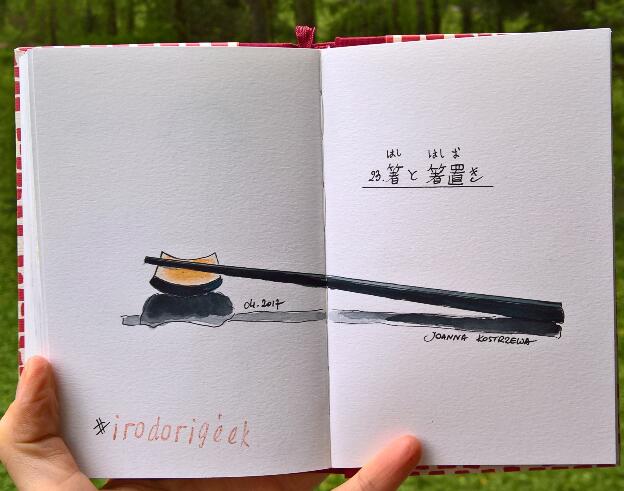 04.2017
#irodorigéek
はし はしお
23. 箸と箸置き
JOANNA KOSTRZEWA